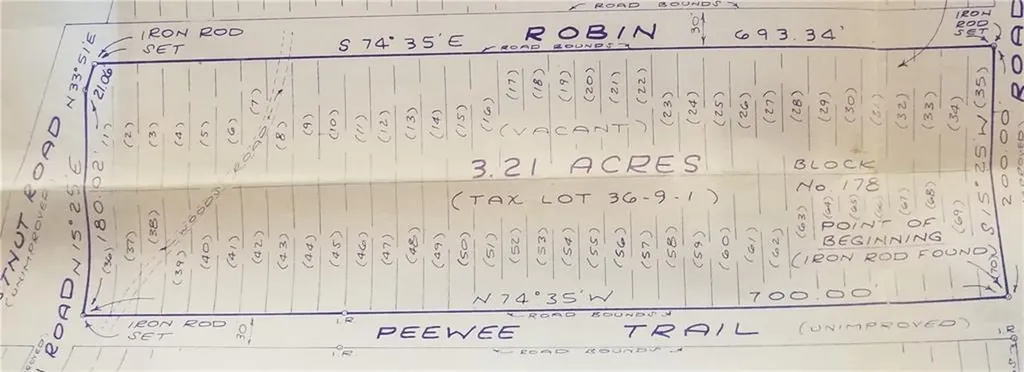 ROAD BOUNDS
IRON ROD
SET
S 74° 35' E
ROBIN
693.34'
30'
IRON
ROD
SET
ROAD BOUNDS
N 33° 51' E
21.06'
ROAD
(1) (2) (3) (4) (5) (6) (7) (8) (9) (10) (11) (12) (13) (14) (15) (16) (17) (18) (19) (20) (21) (22) (23) (24) (25) (26) (27) (28) (29) (30) (31) (32) (33) (34) (35)
(VACANT)
WOODS ROAD
3.21 ACRES
(TAX LOT 36-9-1)
BLOCK
No. 178
POINT OF
BEGINNING
(IRON ROD FOUND)
N 15° 25' E
180.02'
S 15° 25' W
200.00'
(36) (37) (38) (39) (40) (41) (42) (43) (44) (45) (46) (47) (48) (49) (50) (51) (52) (53) (54) (55) (56) (57) (58) (59) (60) (61) (62) (63) (64) (65) (66) (67) (68) (69) (70)
TNUT ROAD
(UNIMPROVED)
ROAD
N 74° 35' W
700.00'
ROAD BOUNDS
IRON ROD
SET
30'
I.R.
I.R.
PEEWEE TRAIL (UNIMPROVED)
I.R.
ROAD BOUNDS